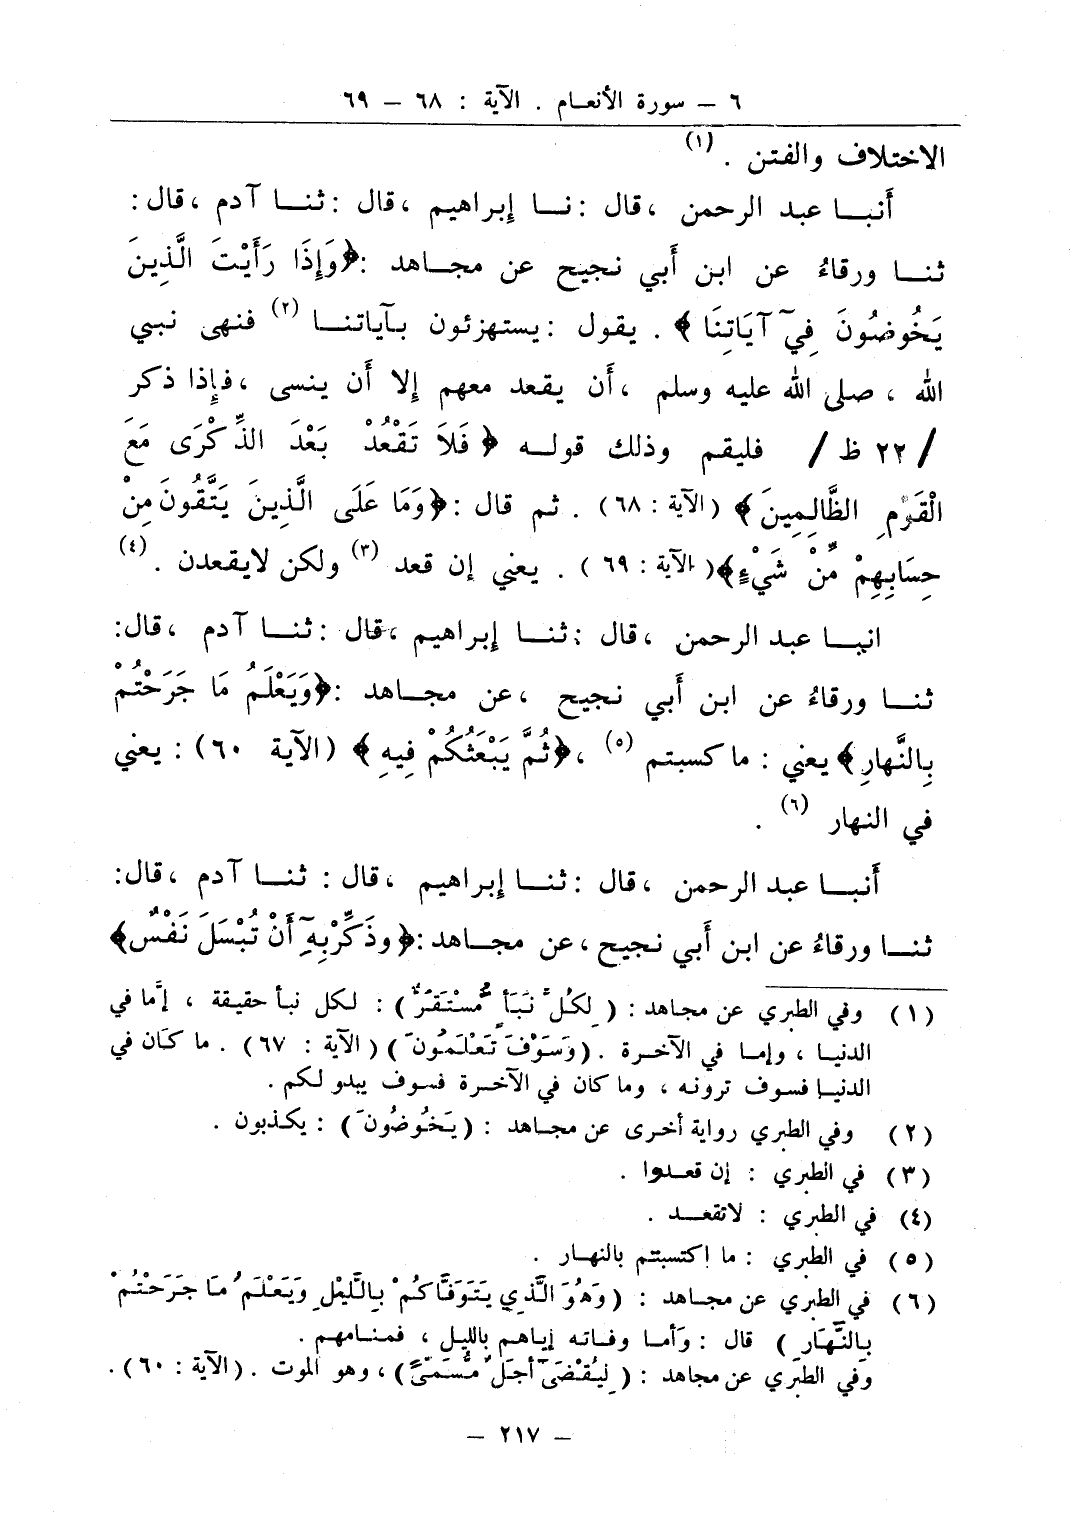 ٦ – سورة الأنعـام . الآية : ٦٨ – ٦٩
الاختلاف والفتن . (١)
أنبـا عبد الرحمن ، قال : نـا إبراهيم ، قال : ثنـا آدم ، قال :
ثنـا ورقاءُ عن ابن أبي نجيح عن مجـاهد : ﴿وَإِذَا رَأَيْتَ الَّذِينَ
يَخُوضُونَ فِيٓ آيَاتِنَا ﴾ . يقول : يستهزئون بـآياتنـا (٢) فنهى نبي
الله ، صلى الله عليه وسلم ، أن يقعد معهم إلا أن ينسى ، فإذا ذكر
/ ٢٢ ظ / فليقم وذلك قولـه ﴿ فَلاَ تَقْعُدْ بَعْدَ الذِّكْرَى مَعَ
الْقَوْمِ الظَّالِمِينَ ﴾ ( الآية : ٦٨ ) . ثم قال : ﴿وَمَا عَلَى الَّذِينَ يَتَّقُونَ مِنْ
حِسَابِهِمْ مِّنْ شَيْءٍ﴾( الآية : ٦٩ ) . يعني إن قعد (٣) ولكن لايقعدن . (٤)
انبـا عبد الرحمن ، قال : ثنـا إبراهيم ، قال : ثنـا آدم ، قال :
ثنـا ورقاءُ عن ابن أبي نجيح ، عن مجـاهد : ﴿وَيَعْلَمُ مَا جَرَحْتُمْ
بِالنَّهارِ﴾ يعني : ما كسبتم (٥) ، ﴿ثُمَّ يَبْعَثُكُمْ فِيهِ ﴾ (الآية ٦٠) : يعني
في النهار (٦) .
أنبـا عبد الرحمن ، قال : ثنـا إبراهيم ، قال : ثنـا آدم ، قال :
ثنـا ورقاءُ عن ابن أبي نجيح ، عن مجـاهد : ﴿ وذَكِّرْ بِهِٓ أَنْ تُبْسَلَ نَفْسٌ﴾
(١) وفي الطبري عن مجاهد : ( لِكُلِّ نَبَأٍ مُسْتَقَرٌّ ) : لكل نبأ حقيقة ، إمَّا في
الدنيـا ، وإمـا في الآخـرة . ( وَسَوْفَ تَعْلَمُونَ ) ( الآية : ٦٧ ) . ما كَان في
الدنيـا فسوف ترونـه ، وما كان في الآخـرة فسوف يبدو لـكم .
(٢) وفي الطبري رواية أخرى عن مجـاهد : ( يَخُوضُونَ ) : يكـذبون .
(٣) في الطبري : إن قعـدوا .
(٤) في الطبري : لاتقعــد .
(٥) في الطبري : ما اكتسبتم بالنهـار .
(٦) في الطبري عن مجـاهد : ( وَهُوَ الَّذِي يَتَوَفَّاكُمْ بِاللَّيْلِ وَيَعْلَمُ مَا جَرَحْتُمْ
بِالنَّهَارِ ) قال : وَأمـا وفـاتـه إياهـم بالليـل ، فمنـامهـم .
وَفي الطبَري عن مجاهد : ( لِيُقْضَىٓ أَجَلٌ مُّسَمًّى ) ، وهو الموت . (الآية : ٦٠) .
– ٢١٧ –